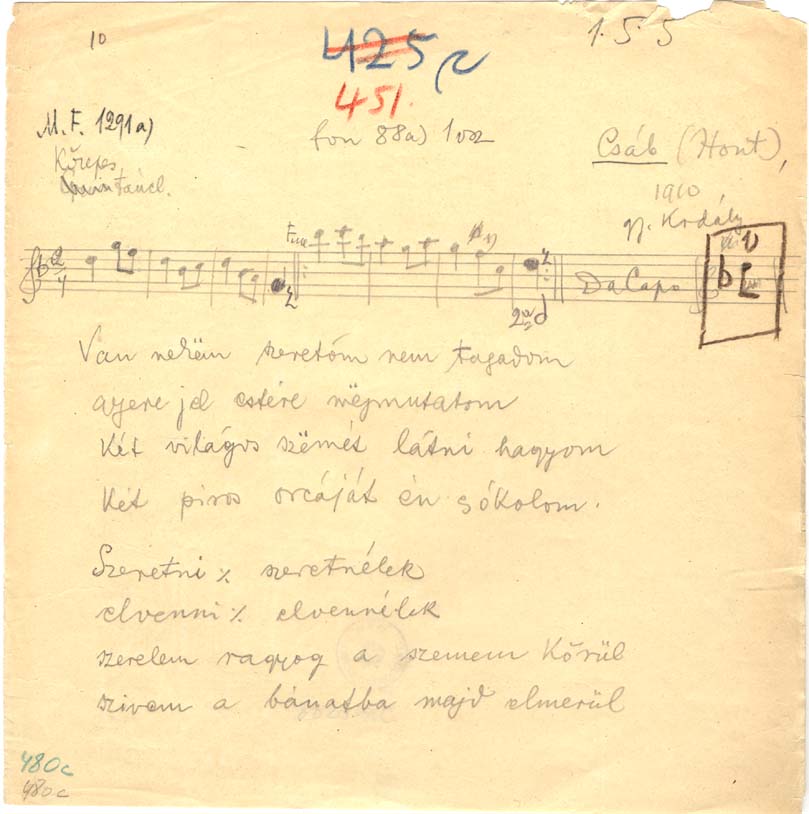 10
425
1.5.5
451.
M. F. 1291a)
fon 88a)
Csáb (Hont),
Közepes
1910
gy. Kodály
Fine
2
4
Da Capo
2a
Van nekëm szeretőm nem tagadom
gyere jel estére mëgmutatom
Két világos szëmét látni hagyom
Két piros orcáját én sókolom.
Szeretni ٪ szeretnélek
elvenni ٪ elvennélek
szerelem ragyog a szemem körül
szivem a bánatba majd elmerül
480c
480c